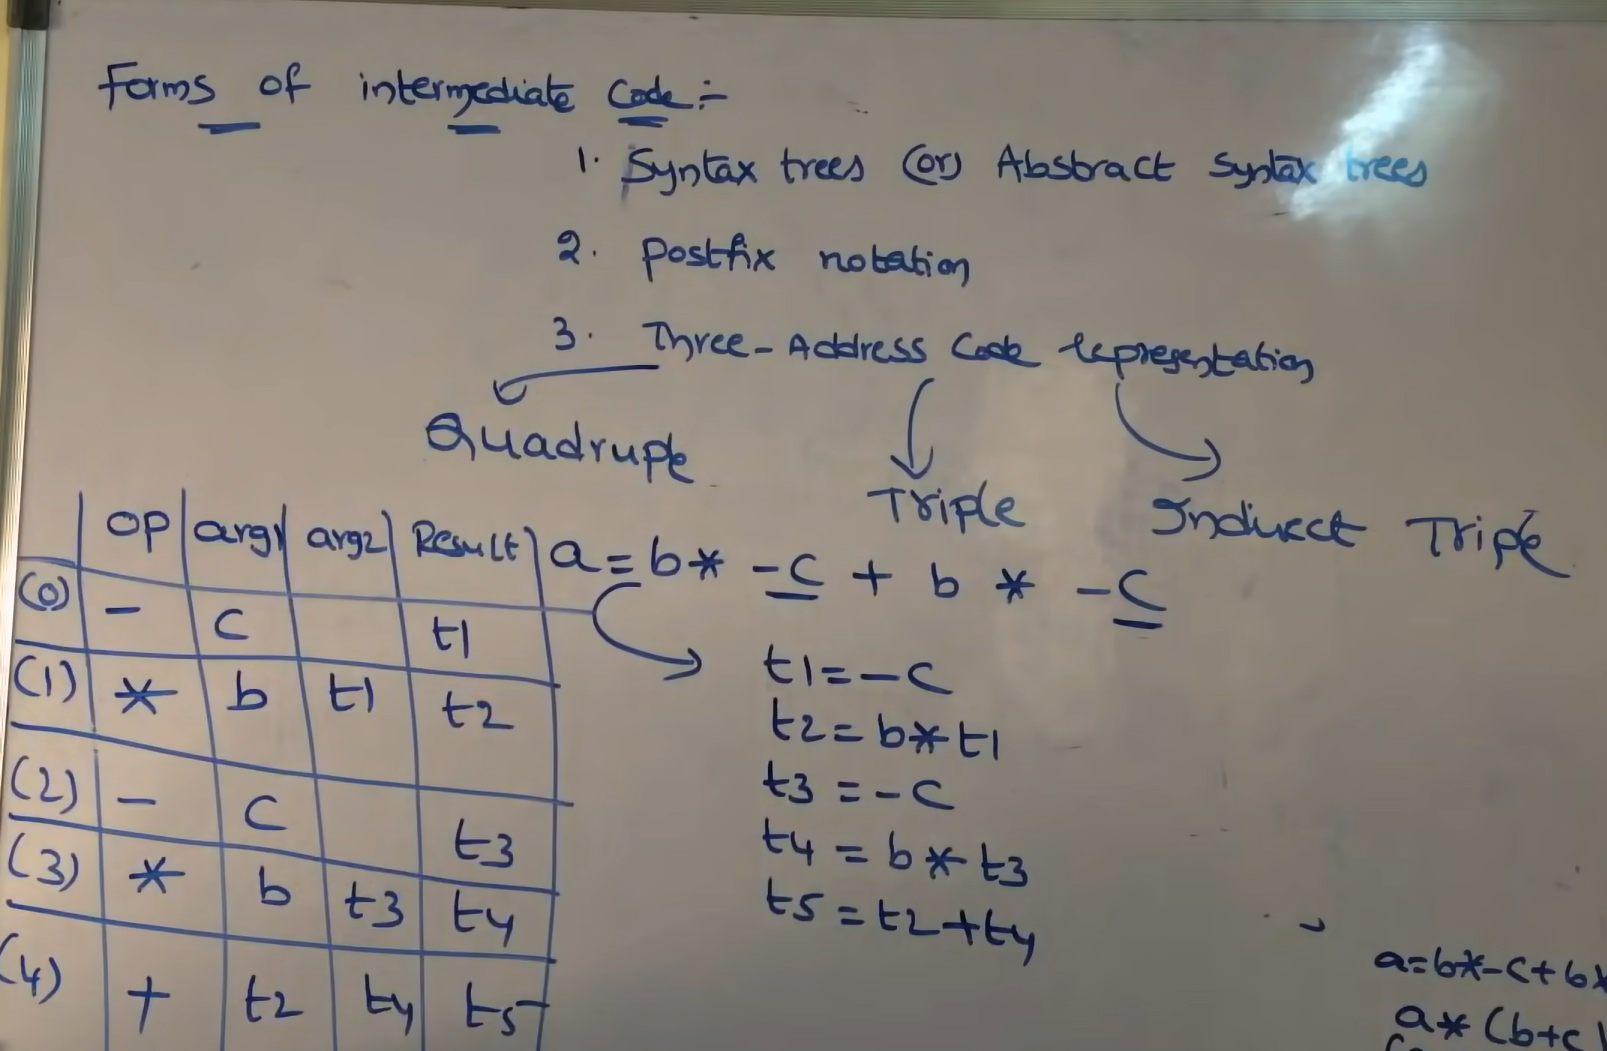 Forms of intermediate Code:-
1. Syntax trees (or) Abstract Syntax trees
2. Postfix notation
3. Three-Address Code representation
Quadruple
Triple
Indirect Triple
op arg1 arg2 Result
(0) - c t1
(1) * b t1 t2
(2) - c t3
(3) * b t3 t4
(4) + t2 t4 t5
a=b* -c + b * -c
t1=-c
t2=b*t1
t3=-c
t4=b*t3
t5=t2+t4
a=b*-c+b*
a*(b+c)